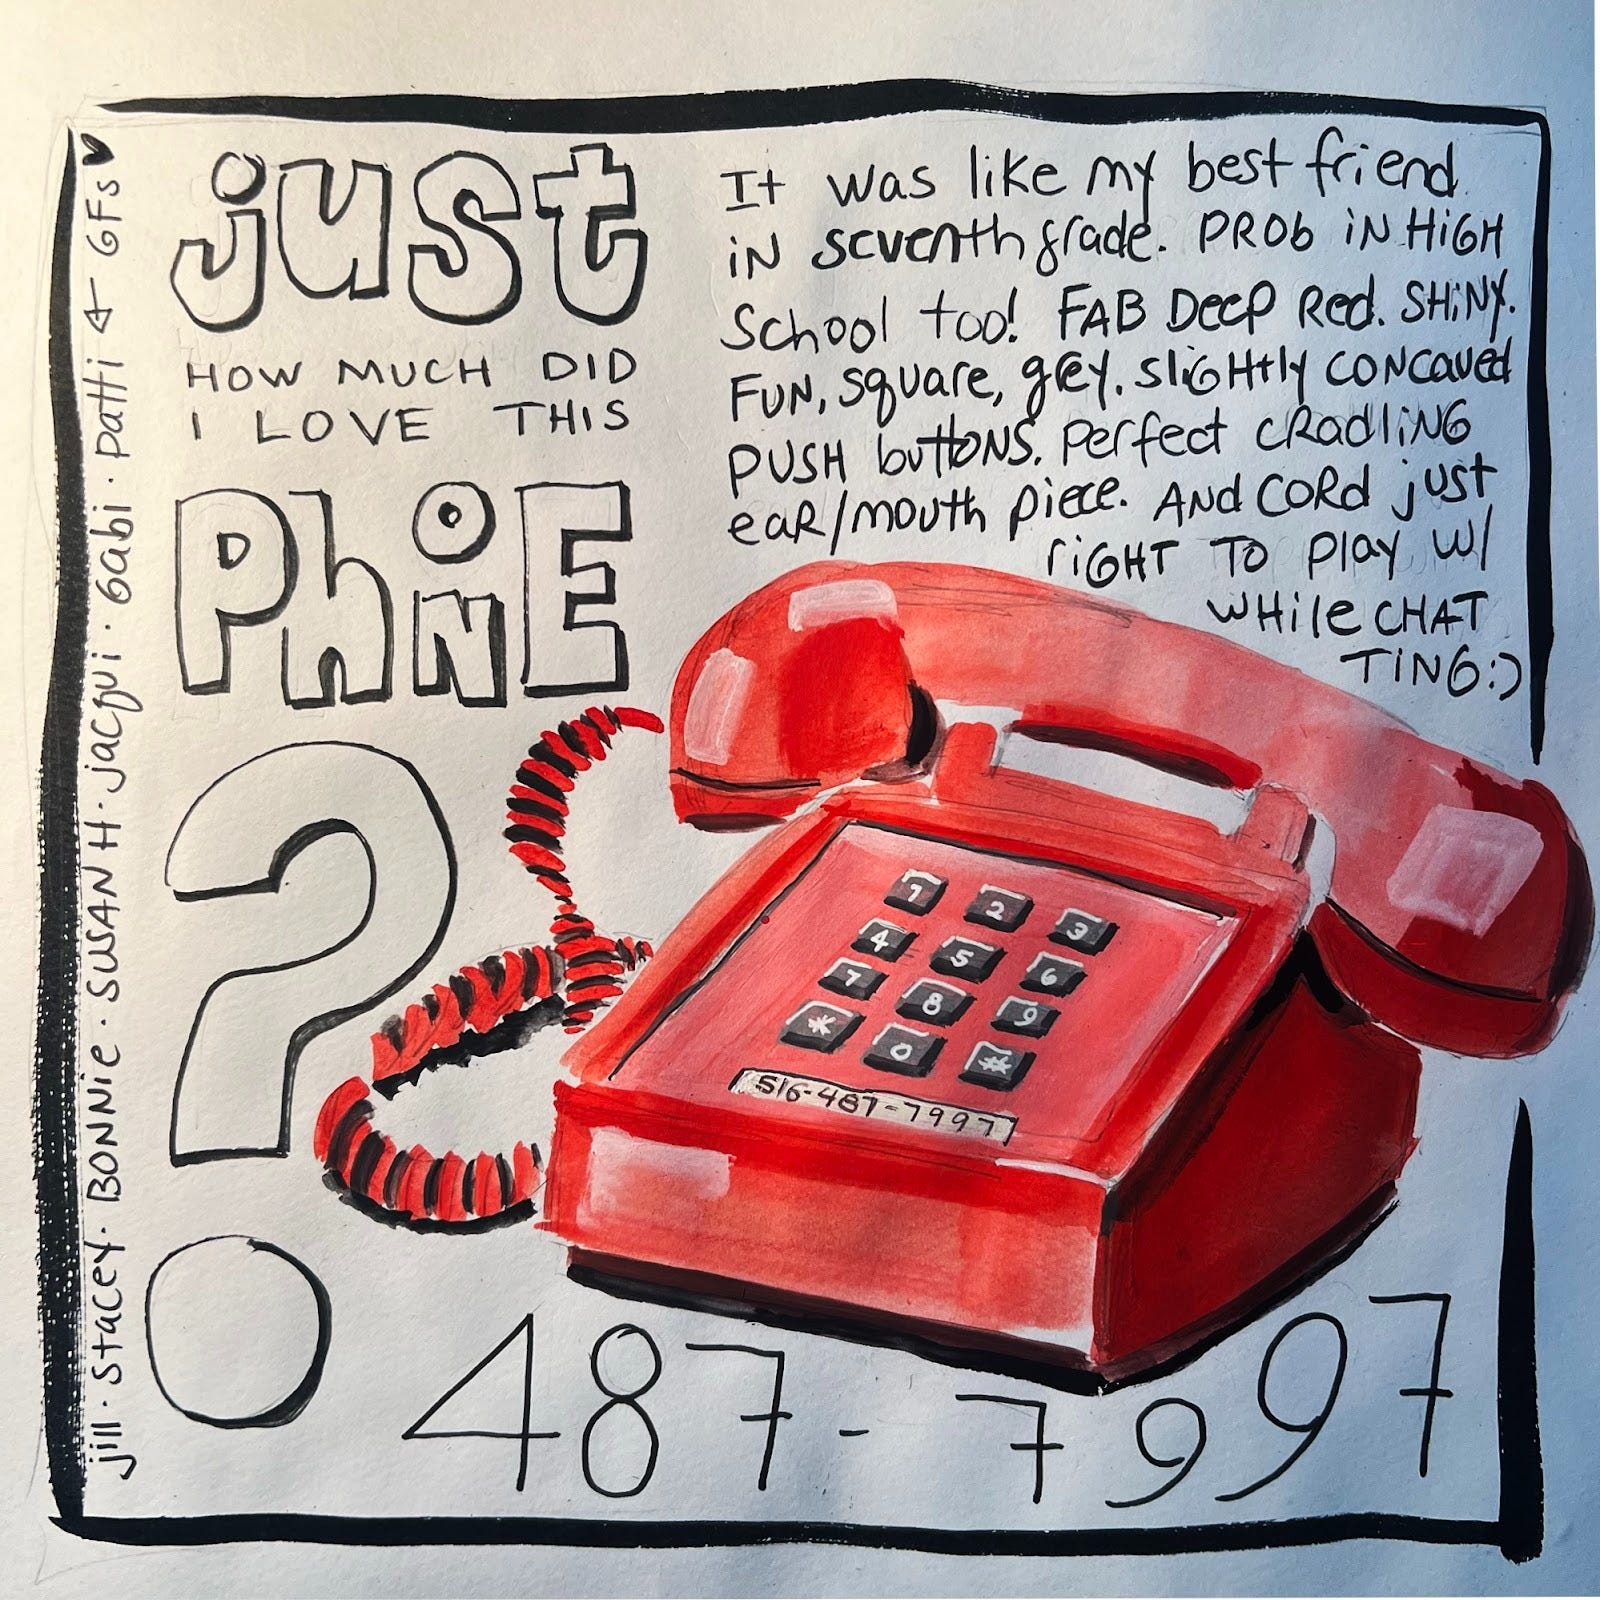 just
HOW MUCH DID
I LOVE THIS
PhoNE
?
It was like my best friend
iN seventh grade. PROb iN HiGH
School too! FAB Deep Red. SHiNY.
FUN, square, grey, sliGHtly CONcaved
PUSH buttONS. Perfect cRadliNG
eaR/mouth piece. ANd CORd just
riGHT TO Play w/
wHile CHAT
TiNG:)
1 2 3
4 5 6
7 8 9
* 0 #
516-487-7997
487-7997
jill · Stacey · BONNie · SUSAN H · jacqui · Gabi · Patti & GFs ♥